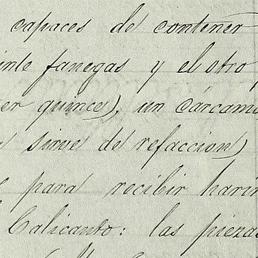 capaces de contener
inte fanegas y el otro
er quince), un cárcamo
sirve de refaccion)
para recibir harin
Calicanto: las pieza